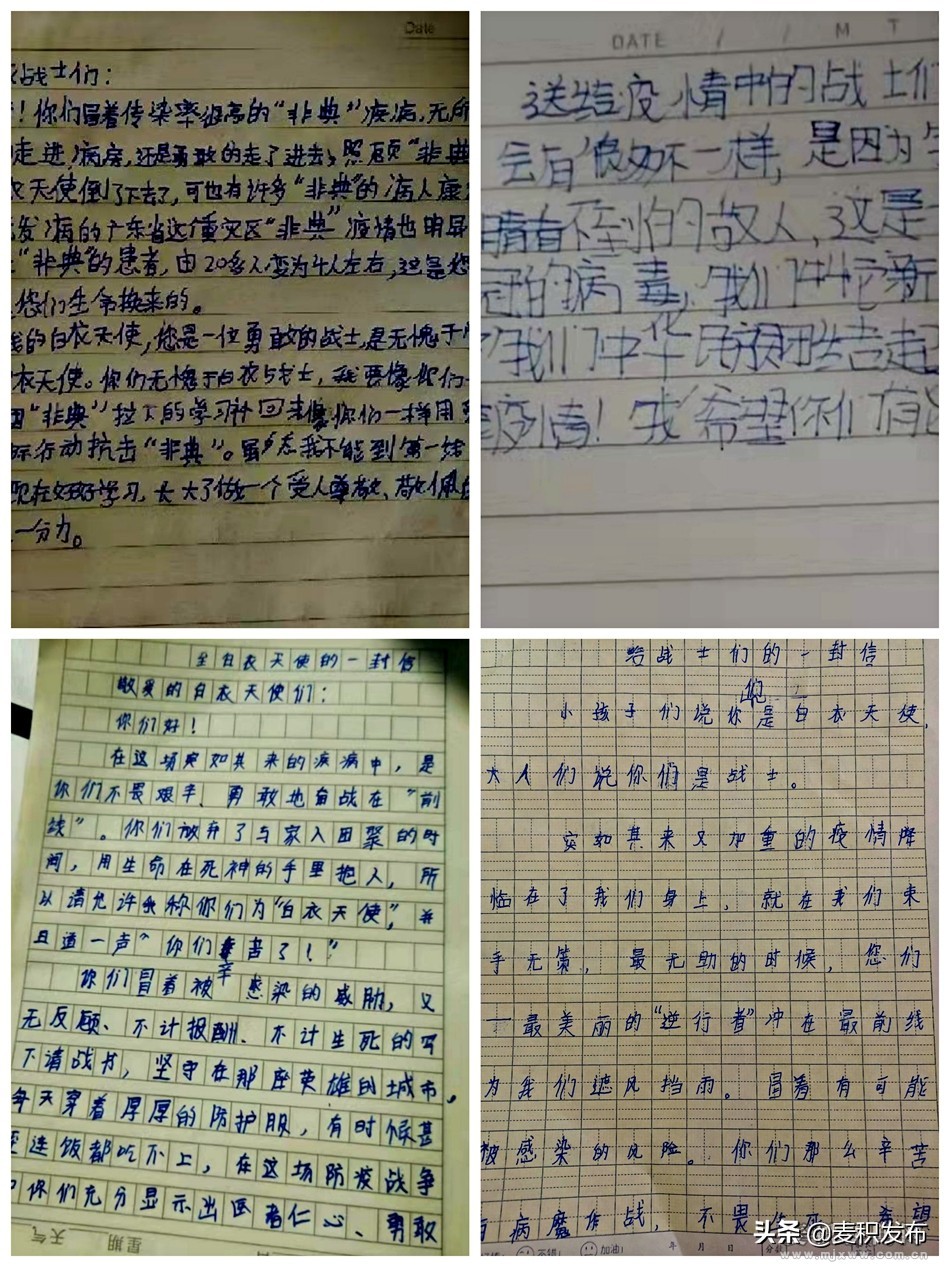 Date
战士们：
！你们冒着传染率很高的“非典”疾病，无所
走进病房，还是勇敢的走了进去，照顾“非典
衣天使倒了下去了，可也有许多“非典”的病人康
发病的广东省这重灾区“非典”疫情也明显
“非典”的患者，由20多人变为4人左右，这是您
您们生命换来的。
的白衣天使，您是一位勇敢的战士，是无愧于
衣天使。你们无愧于白衣战士，我要像你们一
因“非典”拉下的学习补回来像你们一样用
际行动抗击“非典”。虽然我不能到第一线
现在好好学习，长大了做一个受人尊敬、敬佩的
一分力。
DATE / / M T
送给疫情中的战士们
会有很多不一样，是因为
看不到的敌人，这是一
冠的病毒，我们叫它新
我们中华民族胜
疫情！我希望你们有
至白衣天使的一封信
敬爱的白衣天使们：
你们好！
在这场突如其来的疾病中，是
你们不畏艰辛、勇敢地奋战在“前
线”。你们放弃了与家人团聚的时
间，用生命在死神的手里抢人，所
以请允许我称你们为“白衣天使”，并
且道一声“你们辛苦了！”
你们冒着被感染的威胁，义
无反顾、不计报酬、不计生死的写
下请战书，坚守在那座英雄的城市，
每天穿着厚厚的防护服，有时候甚
至连饭都吃不上，在这场防疫战争
中你们充分显示出医者仁心、勇敢
天气 星期
给战士们的一封信
小孩子们说你们是白衣天使，
大人们说你们是战士。
突如其来又加重的疫情降
临在了我们身上，就在我们束
手无策，最无助的时候，您们
一最美丽的“逆行者”冲在最前线
为我们遮风挡雨。冒着有可能
被感染的风险。你们那么辛苦
与病魔作战，不畏
不错！ 加油！ 年 月 日
头条@麦积发布
www.mjxww.com